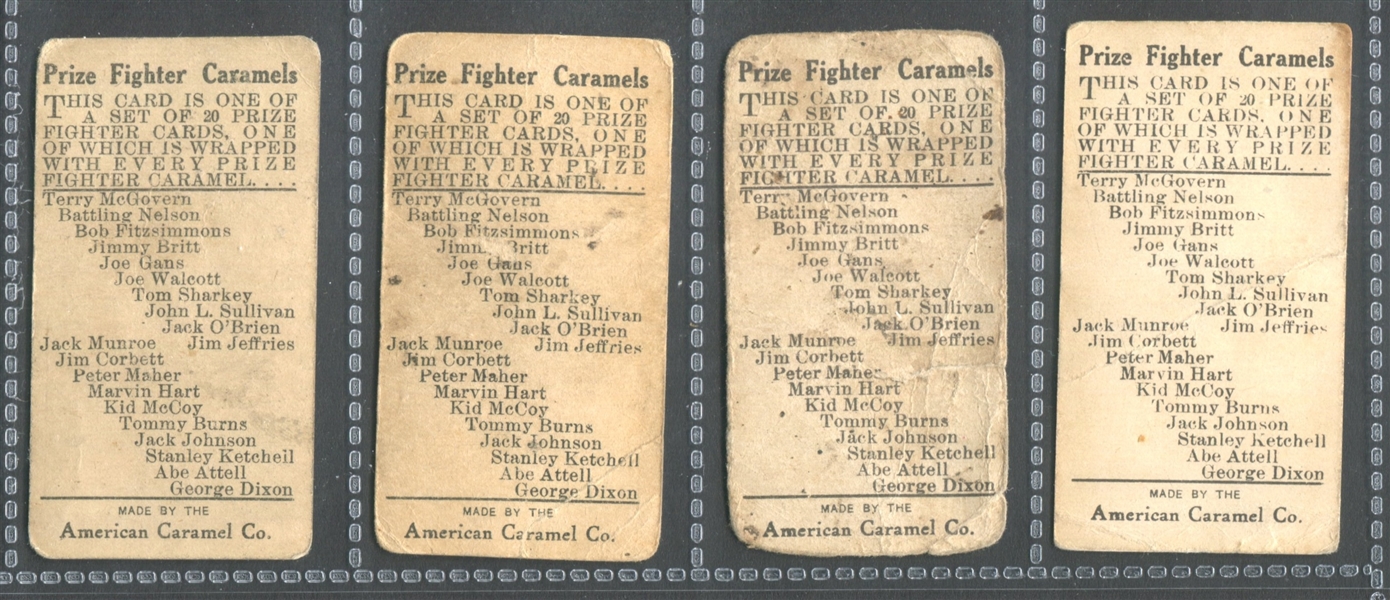 Prize Fighter Caramels
THIS CARD IS ONE OF
A SET OF 20 PRIZE
FIGHTER CARDS, ONE
OF WHICH IS WRAPPED
WITH EVERY PRIZE
FIGHTER CARAMEL....
Terry McGovern
Battling Nelson
Bob Fitzsimmons
Jimmy Britt
Joe Gans
Joe Walcott
Tom Sharkey
John L. Sullivan
Jack O'Brien
Jack Munroe Jim Jeffries
Jim Corbett
Peter Maher
Marvin Hart
Kid McCoy
Tommy Burns
Jack Johnson
Stanley Ketchell
Abe Attell
George Dixon
MADE BY THE
American Caramel Co.
Prize Fighter Caramels
THIS CARD IS ONE OF
A SET OF 20 PRIZE
FIGHTER CARDS, ONE
OF WHICH IS WRAPPED
WITH EVERY PRIZE
FIGHTER CARAMEL....
Terry McGovern
Battling Nelson
Bob Fitzsimmons
Jimmy Britt
Joe Gans
Joe Walcott
Tom Sharkey
John L. Sullivan
Jack O'Brien
Jack Munroe Jim Jeffries
Jim Corbett
Peter Maher
Marvin Hart
Kid McCoy
Tommy Burns
Jack Johnson
Stanley Ketchell
Abe Attell
George Dixon
MADE BY THE
American Caramel Co.
Prize Fighter Caramels
THIS CARD IS ONE OF
A SET OF 20 PRIZE
FIGHTER CARDS, ONE
OF WHICH IS WRAPPED
WITH EVERY PRIZE
FIGHTER CARAMEL....
Terry McGovern
Battling Nelson
Bob Fitzsimmons
Jimmy Britt
Joe Gans
Joe Walcott
Tom Sharkey
John L. Sullivan
Jack O'Brien
Jack Munroe Jim Jeffries
Jim Corbett
Peter Maher
Marvin Hart
Kid McCoy
Tommy Burns
Jack Johnson
Stanley Ketchell
Abe Attell
George Dixon
MADE BY THE
American Caramel Co.
Prize Fighter Caramels
THIS CARD IS ONE OF
A SET OF 20 PRIZE
FIGHTER CARDS, ONE
OF WHICH IS WRAPPED
WITH EVERY PRIZE
FIGHTER CARAMEL....
Terry McGovern
Battling Nelson
Bob Fitzsimmons
Jimmy Britt
Joe Gans
Joe Walcott
Tom Sharkey
John L. Sullivan
Jack O'Brien
Jack Munroe Jim Jeffries
Jim Corbett
Peter Maher
Marvin Hart
Kid McCoy
Tommy Burns
Jack Johnson
Stanley Ketchell
Abe Attell
George Dixon
MADE BY THE
American Caramel Co.